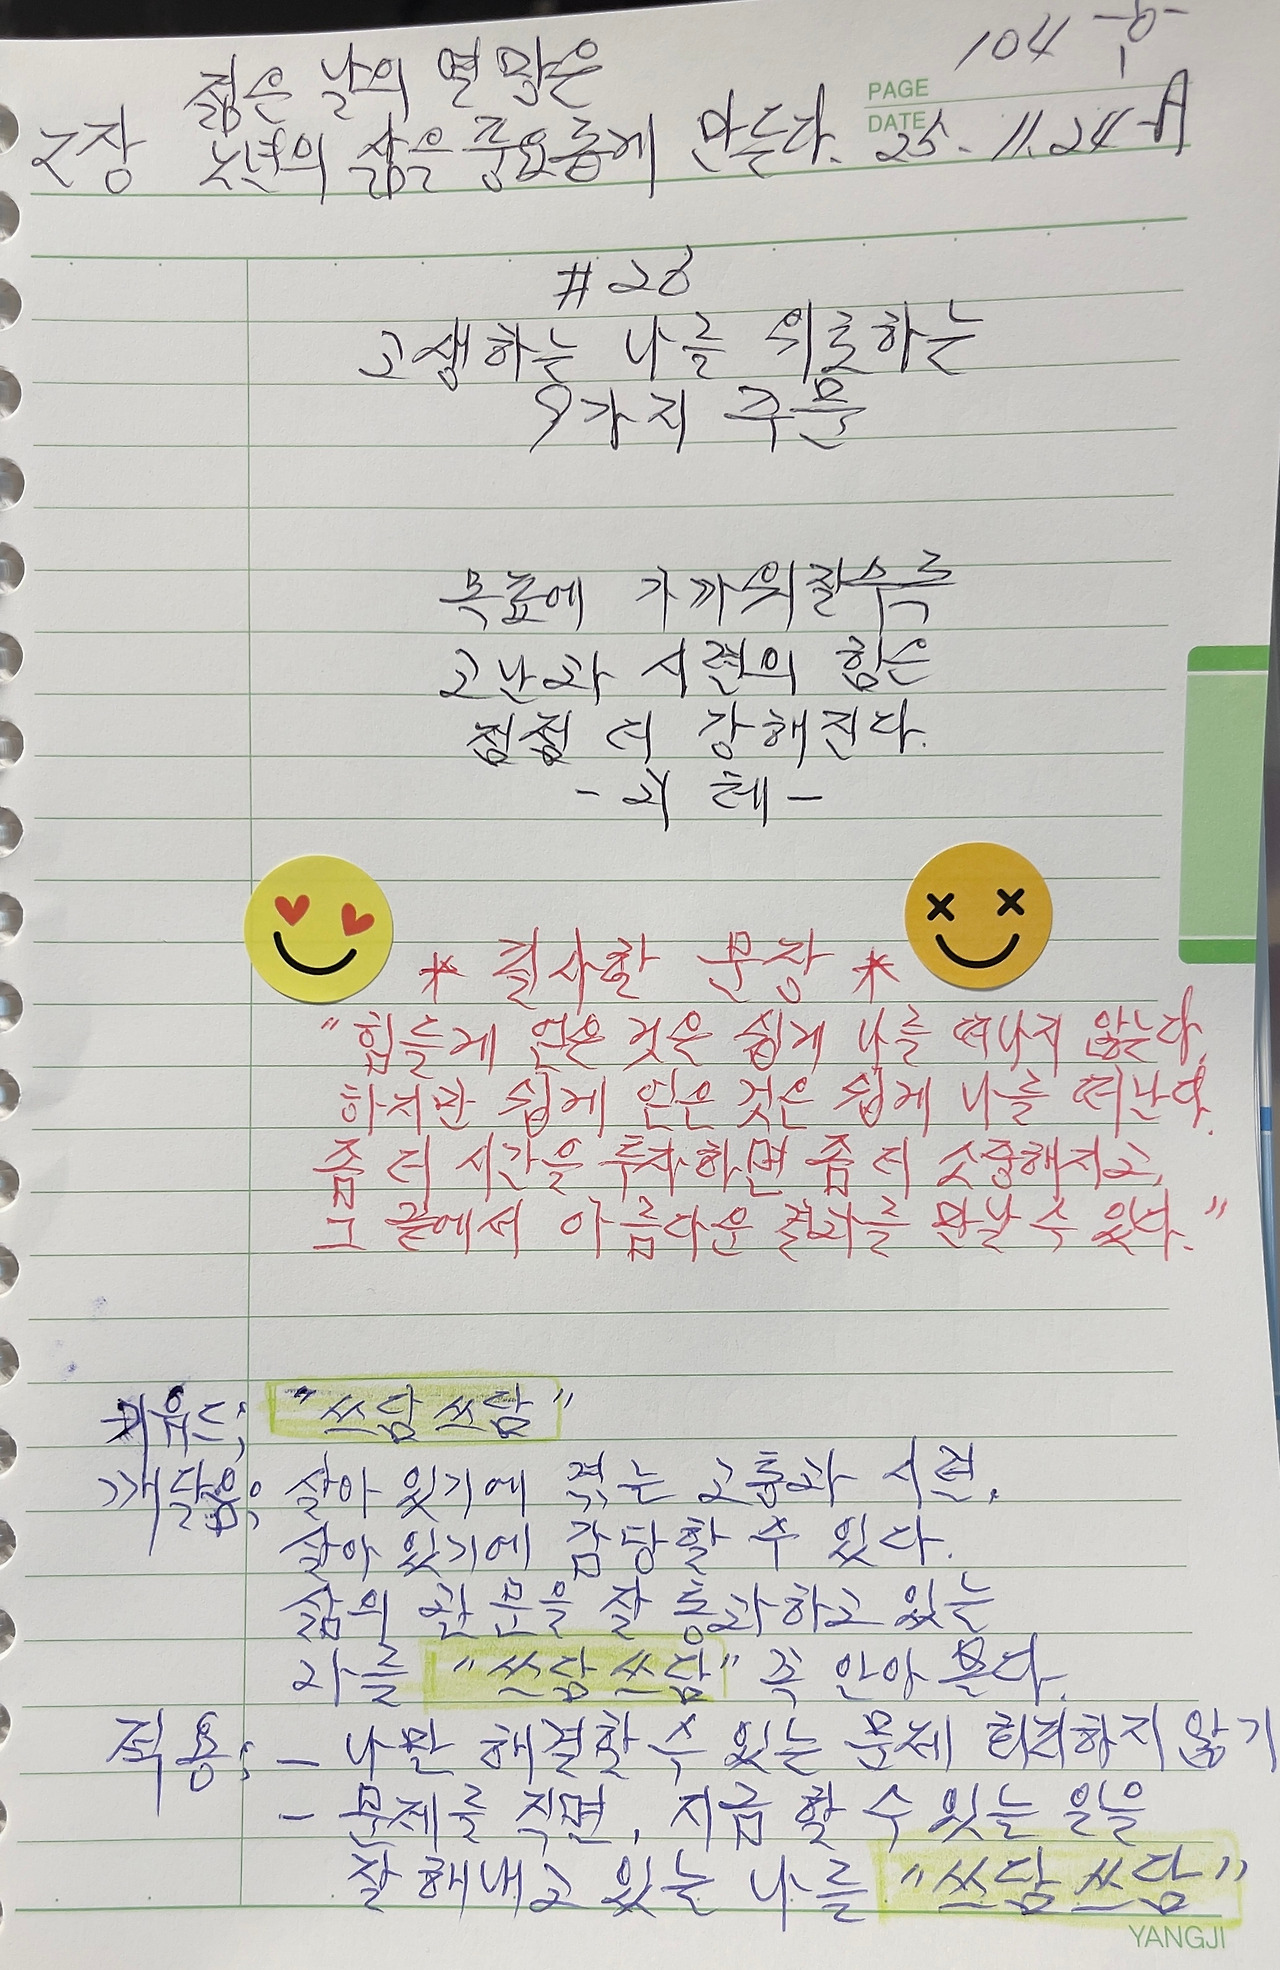 104
PAGE
젊은 날의 열망은
DATE 25. 11. 24
2장 노년의 삶을 풍요롭게 만든다.
#26
고생하는 나를 위로하는
9가지 주문
목표에 가까워질수록
고난과 시련의 힘은
점점 더 강해진다.
- 괴테 -
* 필사할 문장 *
"힘들게 얻은 것은 쉽게 나를 떠나지 않는다.
하지만 쉽게 얻은 것은 쉽게 나를 떠난다.
좀 더 시간을 투자하면 좀 더 소중해지고,
그 끝에서 아름다운 결과를 만날 수 있다."
키워드; "쓰담쓰담"
깨달음; 살아 있기에 겪는 고통과 시련.
살아 있기에 감당할 수 있다.
삶의 관문을 잘 통과하고 있는
나를 "쓰담쓰담" 꼭 안아 본다.
적용; - 나만 해결할 수 있는 문제 회피하지 않기
- 문제를 직면, 지금 할 수 있는 일을
잘 해내고 있는 나를 "쓰담쓰담"
YANGJI